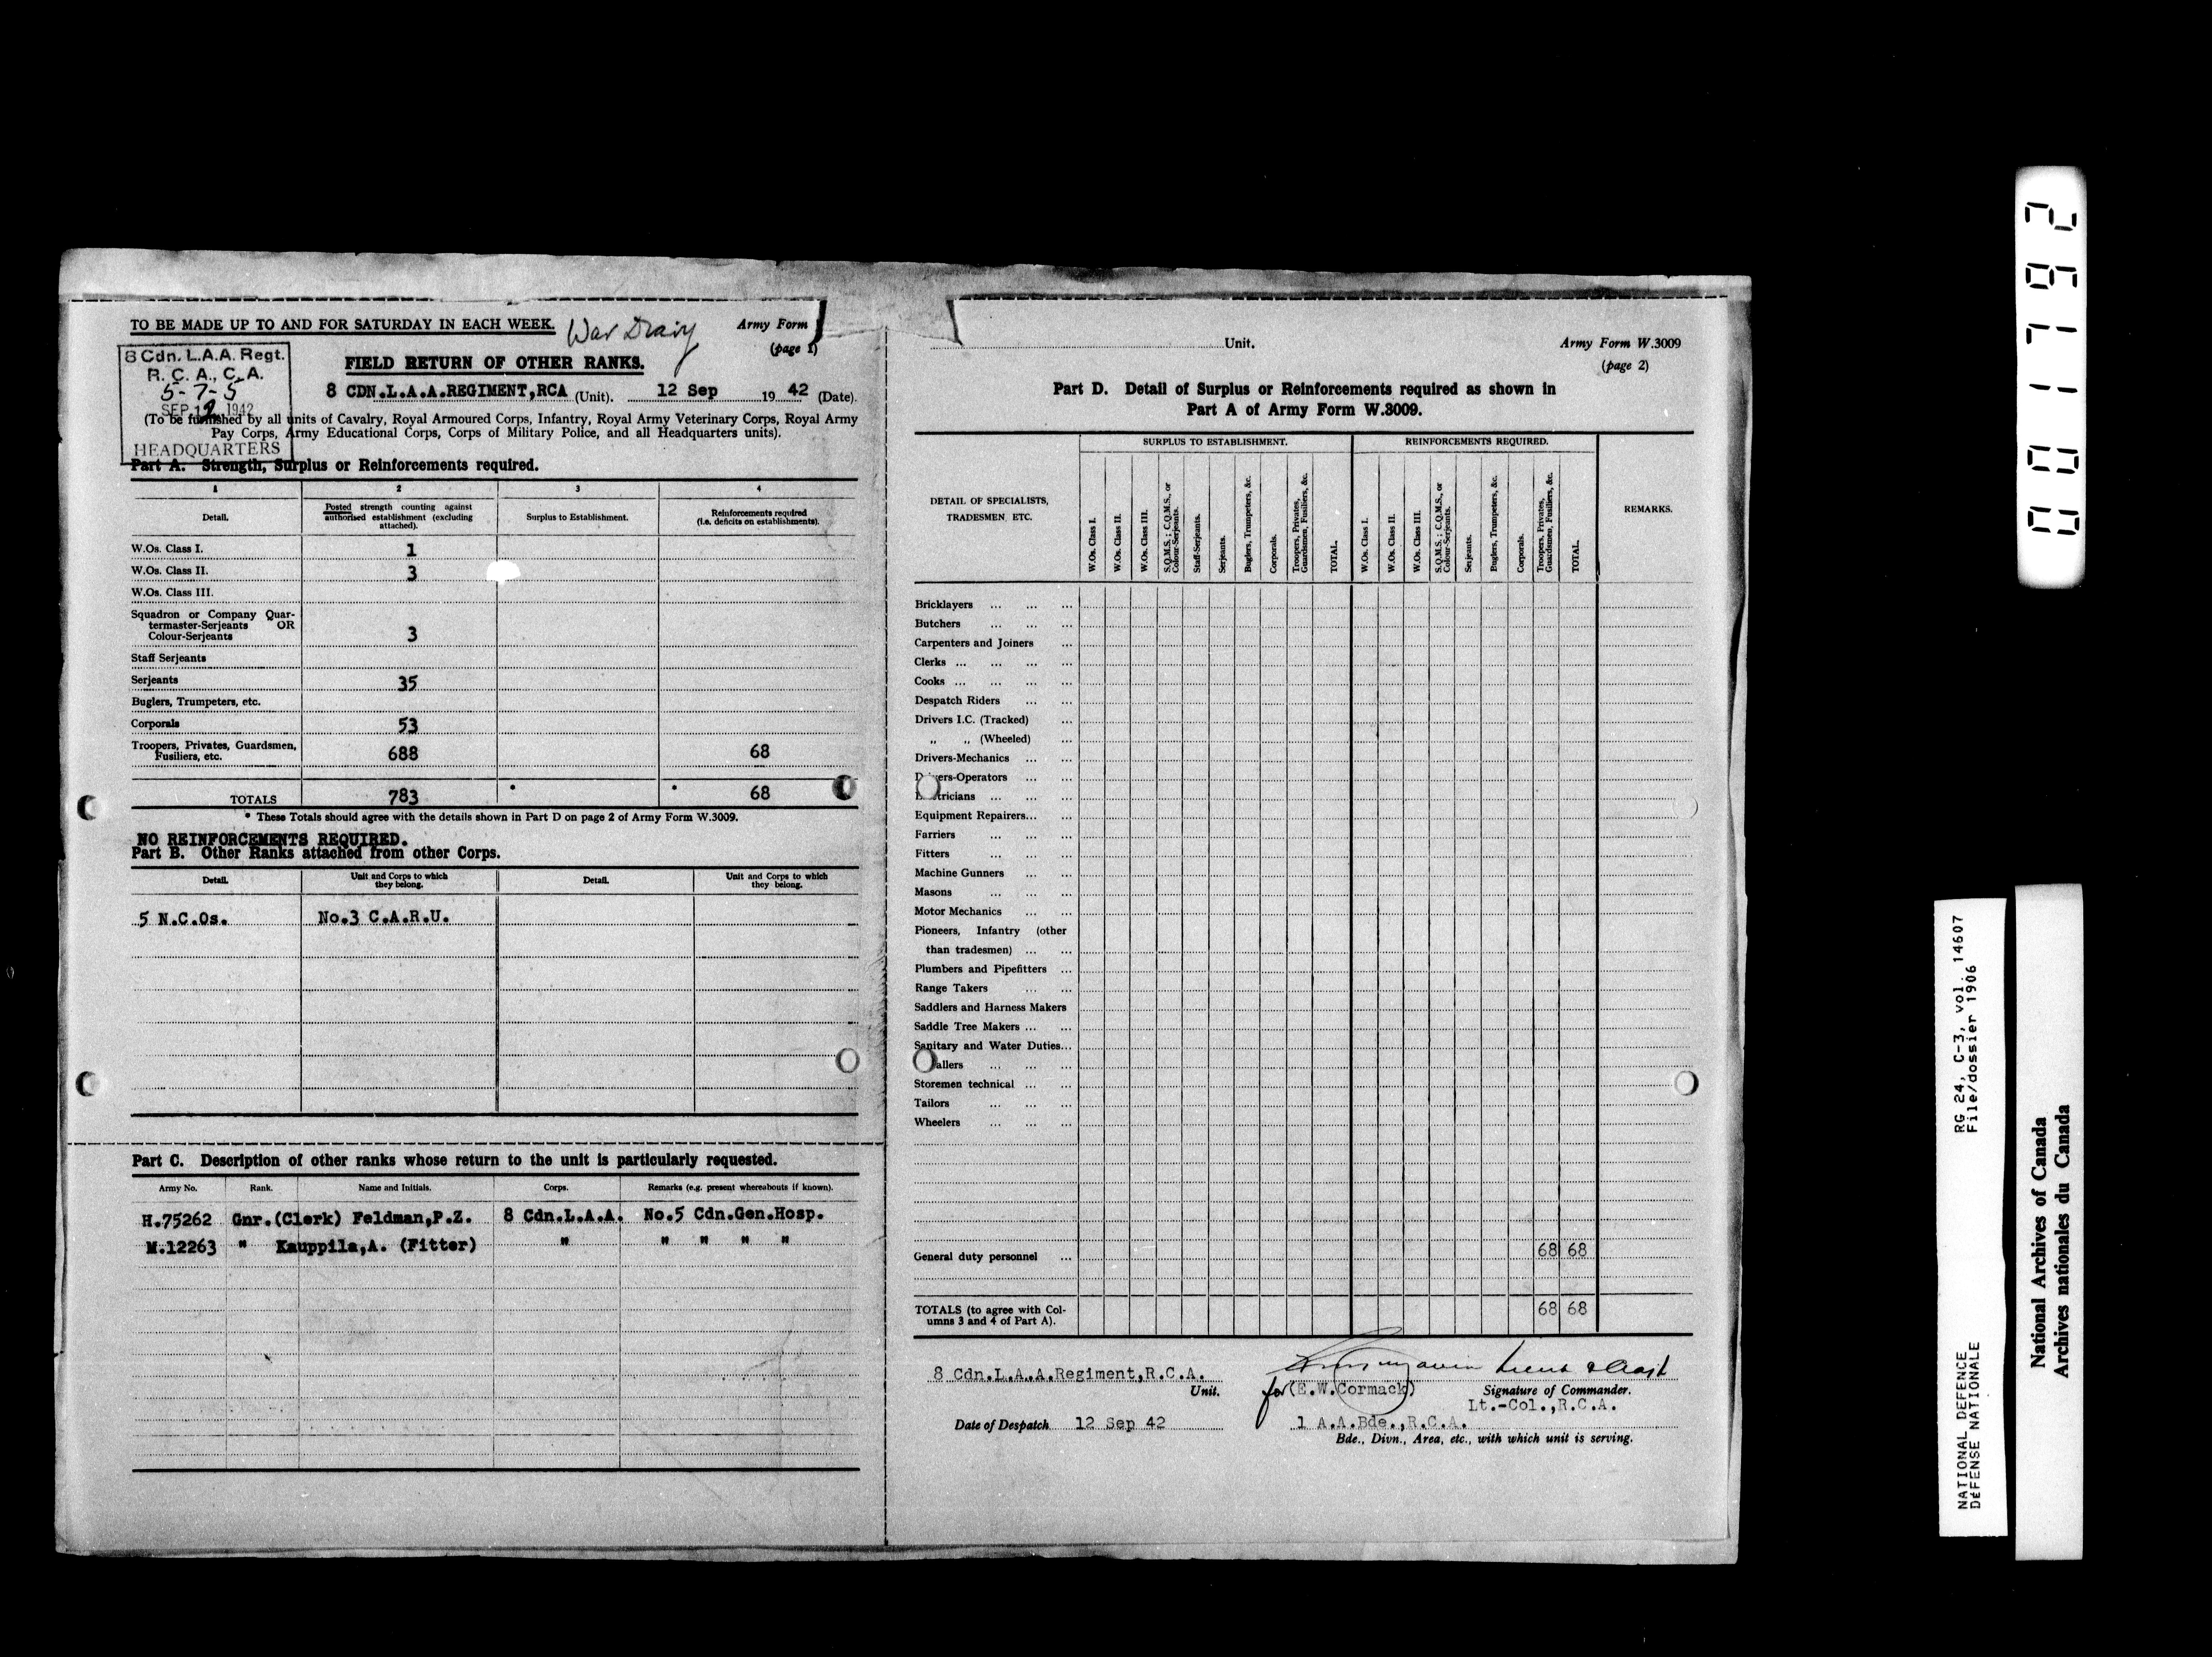 TO BE MADE UP TO AND FOR SATURDAY IN EACH WEEK.
War Diary
Army Form
(page 1)
8 Cdn. L.A.A. Regt.
R. C. A., C. A.
5-7-5
SEP 12 1942
HEADQUARTERS
FIELD RETURN OF OTHER RANKS.
8 CDN.L.A.A.REGIMENT,RCA (Unit). 12 Sep 19 42 (Date).
(To be furnished by all units of Cavalry, Royal Armoured Corps, Infantry, Royal Army Veterinary Corps, Royal Army
Pay Corps, Army Educational Corps, Corps of Military Police, and all Headquarters units).
Part A. Strength, Surplus or Reinforcements required.
1 2 3 4
Detail. Posted strength counting against authorised establishment (excluding attached). Surplus to Establishment. Reinforcements required (i.e. deficits on establishments).
W.Os. Class I. 1
W.Os. Class II. 3
W.Os. Class III.
Squadron or Company Quar-
termaster-Serjeants OR
Colour-Serjeants 3
Staff Serjeants
Serjeants 35
Buglers, Trumpeters, etc.
Corporals 53
Troopers, Privates, Guardsmen,
Fusiliers, etc. 688 68
TOTALS 783 * * 68
* These Totals should agree with the details shown in Part D on page 2 of Army Form W.3009.
NO REINFORCEMENTS REQUIRED.
Part B. Other Ranks attached from other Corps.
Detail. Unit and Corps to which they belong. Detail. Unit and Corps to which they belong.
5 N.C.Os. No.3 C.A.R.U.
Part C. Description of other ranks whose return to the unit is particularly requested.
Army No. Rank. Name and Initials. Corps. Remarks (e.g. present whereabouts if known).
H.75262 Gnr.(Clerk) Feldman,P.Z. 8 Cdn.L.A.A. No.5 Cdn.Gen.Hosp.
M.12263 " Kauppila,A. (Fitter) " " " " "
Unit.
Army Form W.3009
(page 2)
Part D. Detail of Surplus or Reinforcements required as shown in
Part A of Army Form W.3009.
DETAIL OF SPECIALISTS,
TRADESMEN, ETC.
SURPLUS TO ESTABLISHMENT.
W.Os. Class I.
W.Os. Class II.
W.Os. Class III.
S.Q.M.S.; C.Q.M.S., or
Colour-Serjeants.
Staff-Serjeants.
Serjeants.
Buglers, Trumpeters, &c.
Corporals.
Troopers, Privates,
Guardsmen, Fusiliers, &c.
TOTAL.
REINFORCEMENTS REQUIRED.
W.Os. Class I.
W.Os. Class II.
W.Os. Class III.
S.Q.M.S.; C.Q.M.S., or
Colour-Serjeants.
Serjeants.
Buglers, Trumpeters, &c.
Corporals.
Troopers, Privates,
Guardsmen, Fusiliers, &c.
TOTAL.
REMARKS.
Bricklayers ... ... ...
Butchers ... ... ...
Carpenters and Joiners ...
Clerks ... ... ... ...
Cooks ... ... ... ...
Despatch Riders ... ...
Drivers I.C. (Tracked) ...
" " (Wheeled) ...
Drivers-Mechanics ... ...
ers-Operators ... ...
tricians ... ... ...
Equipment Repairers... ...
Farriers ... ... ...
Fitters ... ... ...
Machine Gunners ... ...
Masons ... ... ...
Motor Mechanics ... ...
Pioneers, Infantry (other
than tradesmen) ... ...
Plumbers and Pipefitters ...
Range Takers ... ...
Saddlers and Harness Makers
Saddle Tree Makers ... ...
Sanitary and Water Duties...
allers ... ... ...
Storemen technical ... ...
Tailors ... ... ...
Wheelers ... ... ...
General duty personnel ... 68 68
TOTALS (to agree with Col-
umns 3 and 4 of Part A). 68 68
8 Cdn.L.A.A.Regiment,R.C.A.
Unit.
Lieut & Adjt
for (E.W.Cormack) Signature of Commander.
Lt.-Col.,R.C.A.
Date of Despatch 12 Sep 42
1 A.A.Bde.,R.C.A.
Bde., Divn., Area, etc., with which unit is serving.
RG 24, C-3, vol. 14607
File/dossier 1906
NATIONAL DEFENCE
DÉFENSE NATIONALE
National Archives of Canada
Archives nationales du Canada